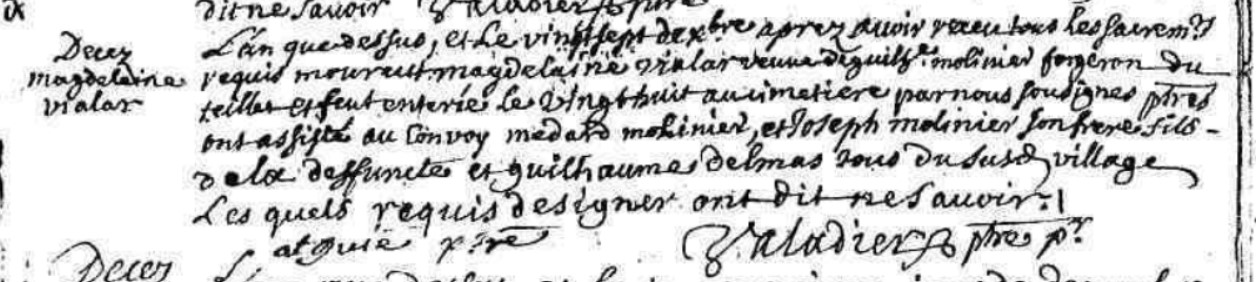 dit ne savoir Valadier ptre
Decez
magdelaine
vialar
L'an que dessus, et le vingt sept dexbre aprez avoir receu tous les sacremts
requis mourut magdelaine vialar veuve de guilhe molinier forgeron du
teillet et feut enterrée le vingt huit au cimetiere par nous sousignes ptres
ont assisté au convoy medard molinier, et Joseph molinier son frere fils
de la deffuncte et guilhaume delmas tous du susd village
Les quels requis de signer ont dit ne savoir
ptre Valadier ptre pr
Decez L'an que dessus et le